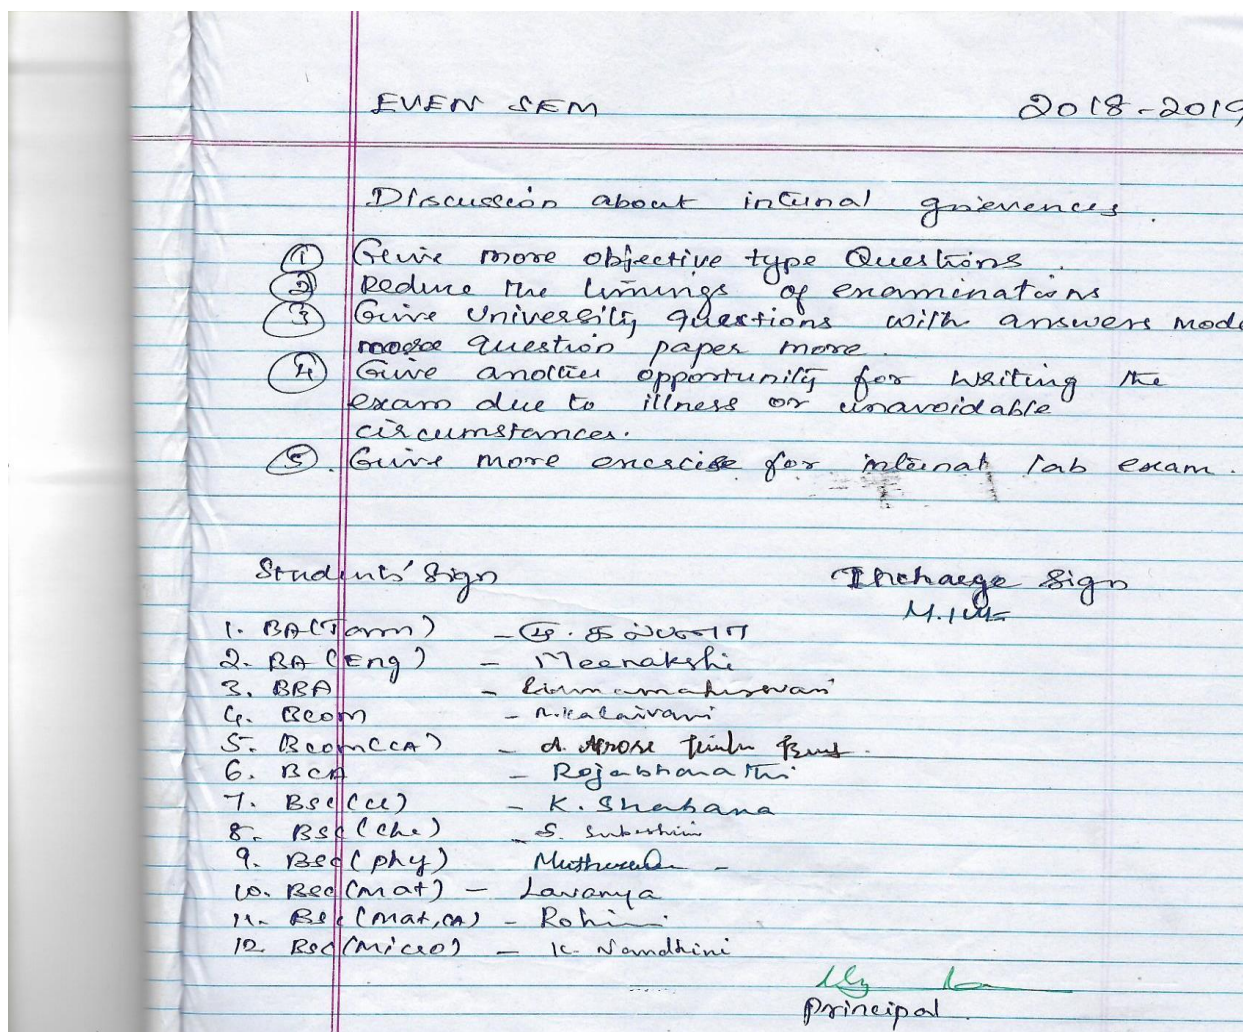 EVEN SEM 2018-2019
Discussion about internal grievences.
1 Give more objective type Questions.
2 Reduce the timings of examinations
3 Give University questions with answers mode
question paper more.
4 Give another opportunity for writing the
exam due to illness or unavoidable
circumstances.
5. Give more exercise for internal lab exam.
Students' Sign Incharge Sign
1. BA(Tam) - மு. கல்பனா
2. BA (Eng) - Meenakshi
3. BBA -
4. Bcom - M.Kalaivani
5. Bcom(CA) - A. Afrose
6. BCA - Rajabharathi
7. BSc(CS) - K. Shahana
8. BSc(Che) - S. Subashini
9. BSc(phy)
10. BSc(mat) - Lavanya
11. BSc(mat,CA) - Rohini
12 BSc(Micro) - K. Nandhini
Principal.